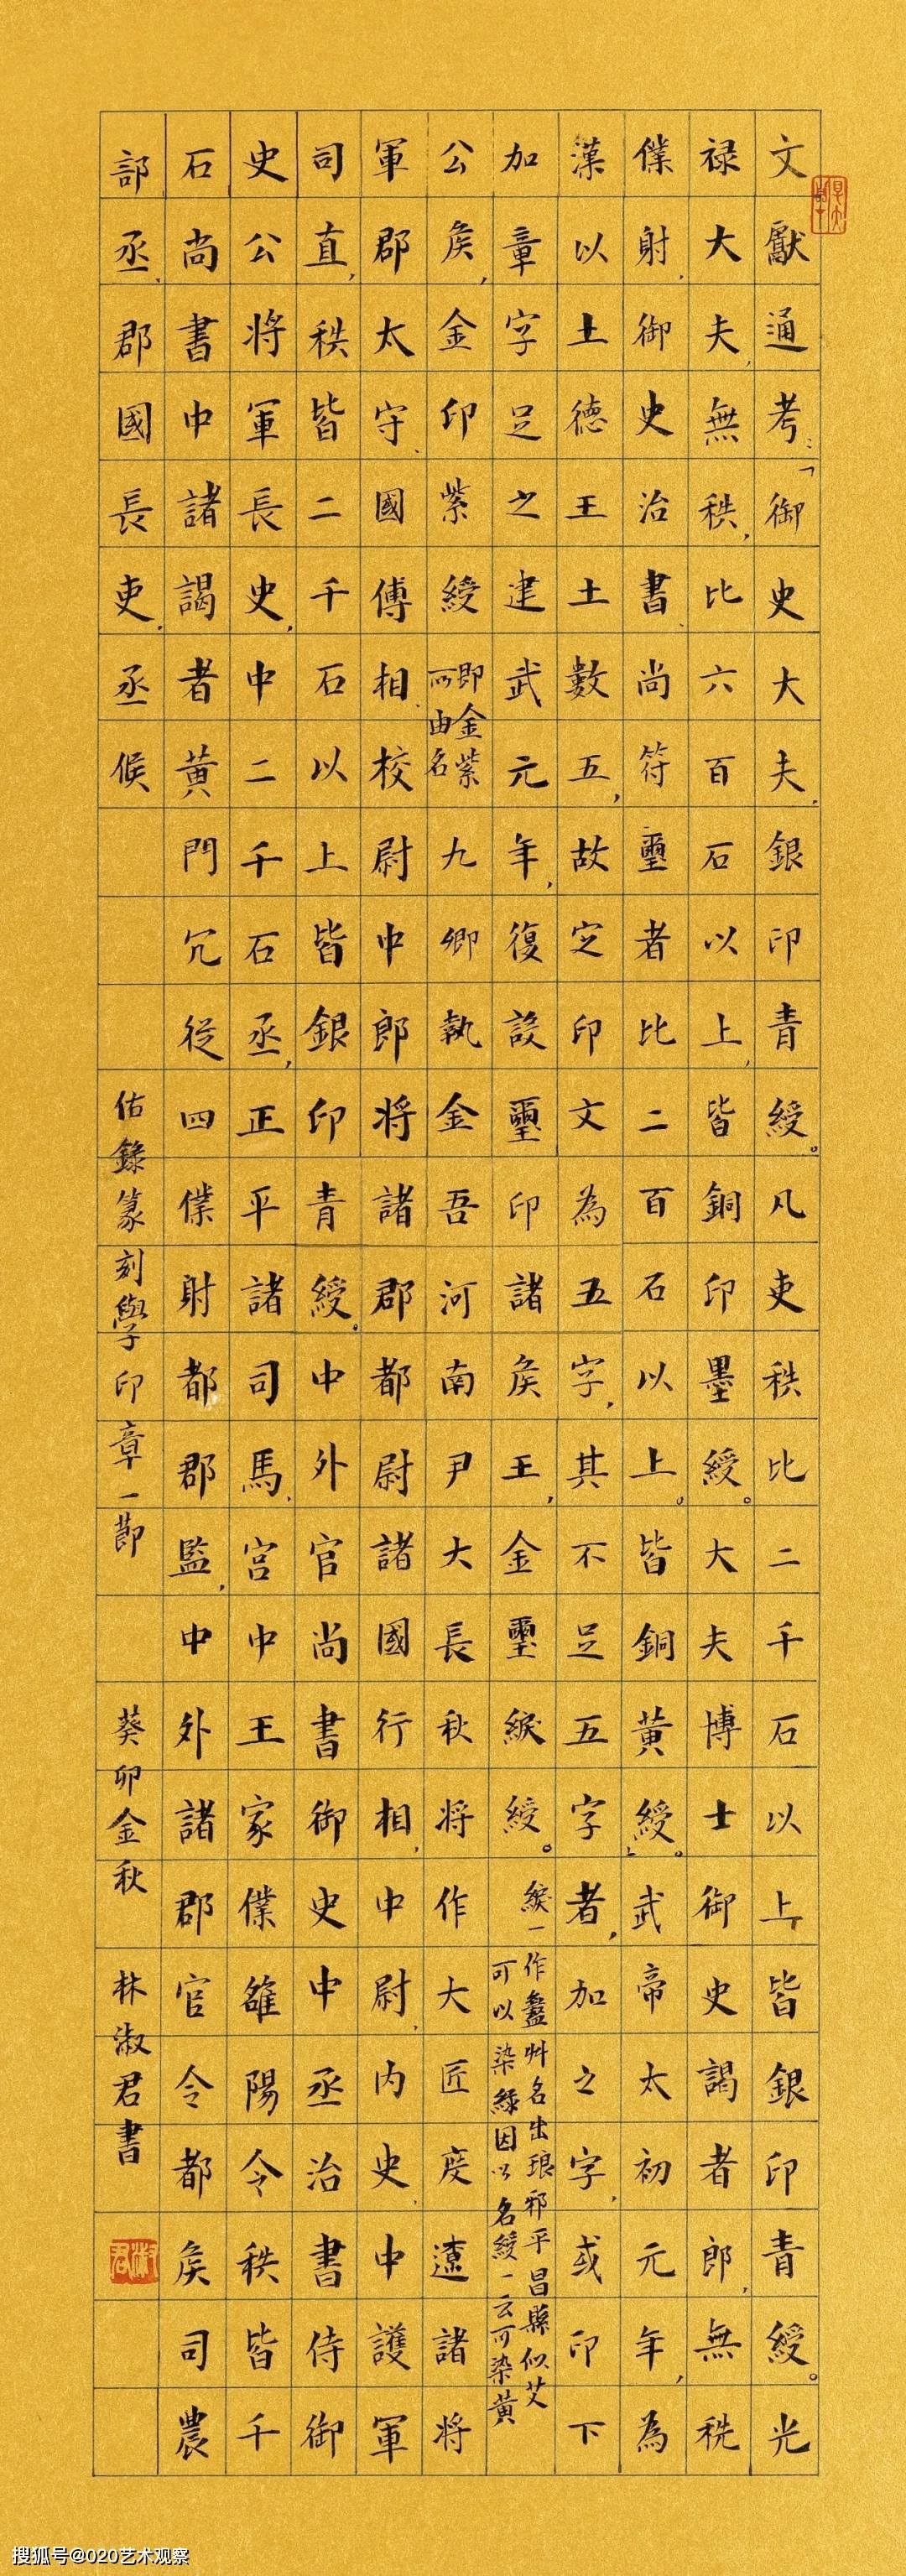 文獻通考：「御史大夫，銀印青綬。凡吏秩比二千石以上皆銀印青綬。光
禄大夫，無秩，比六百石以上，皆銅印墨綬。大夫博士御史謁者郎，無秩
僕射，御史治書、尚符璽者比二百石以上。皆銅黃綬。武帝太初元年，為
漢以土德王土數五，故定印文為五字，其不足五字者，加之字，或印下
加章字足之建武元年，復設璽印諸矦王，金璽綟綬。
綟一作盭艸名出琅邪平昌縣似艾
可以染綠因以名綬一云可染黃
公矦，金印紫綬
即金紫
所由名
九卿執金吾河南尹大長秋将作大匠度遼諸将
軍郡太守、國傅相、校尉中郎将諸郡都尉諸國行相，中尉、内史、中護軍
司直，秩皆二千石以上皆銀印青綬。中外官尚書御史中丞治書侍御
史公将軍長史，中二千石丞，正平諸司馬、宫中王家僕雒陽令秩皆千
石尚書中諸謁者黃門冗従四僕射都郡監，中外諸郡官令都矦司農
部丞、郡國長吏、丞候
佑錄篆刻學印章一節
癸卯金秋
林淑君書
淑君
搜狐号@020艺术观察